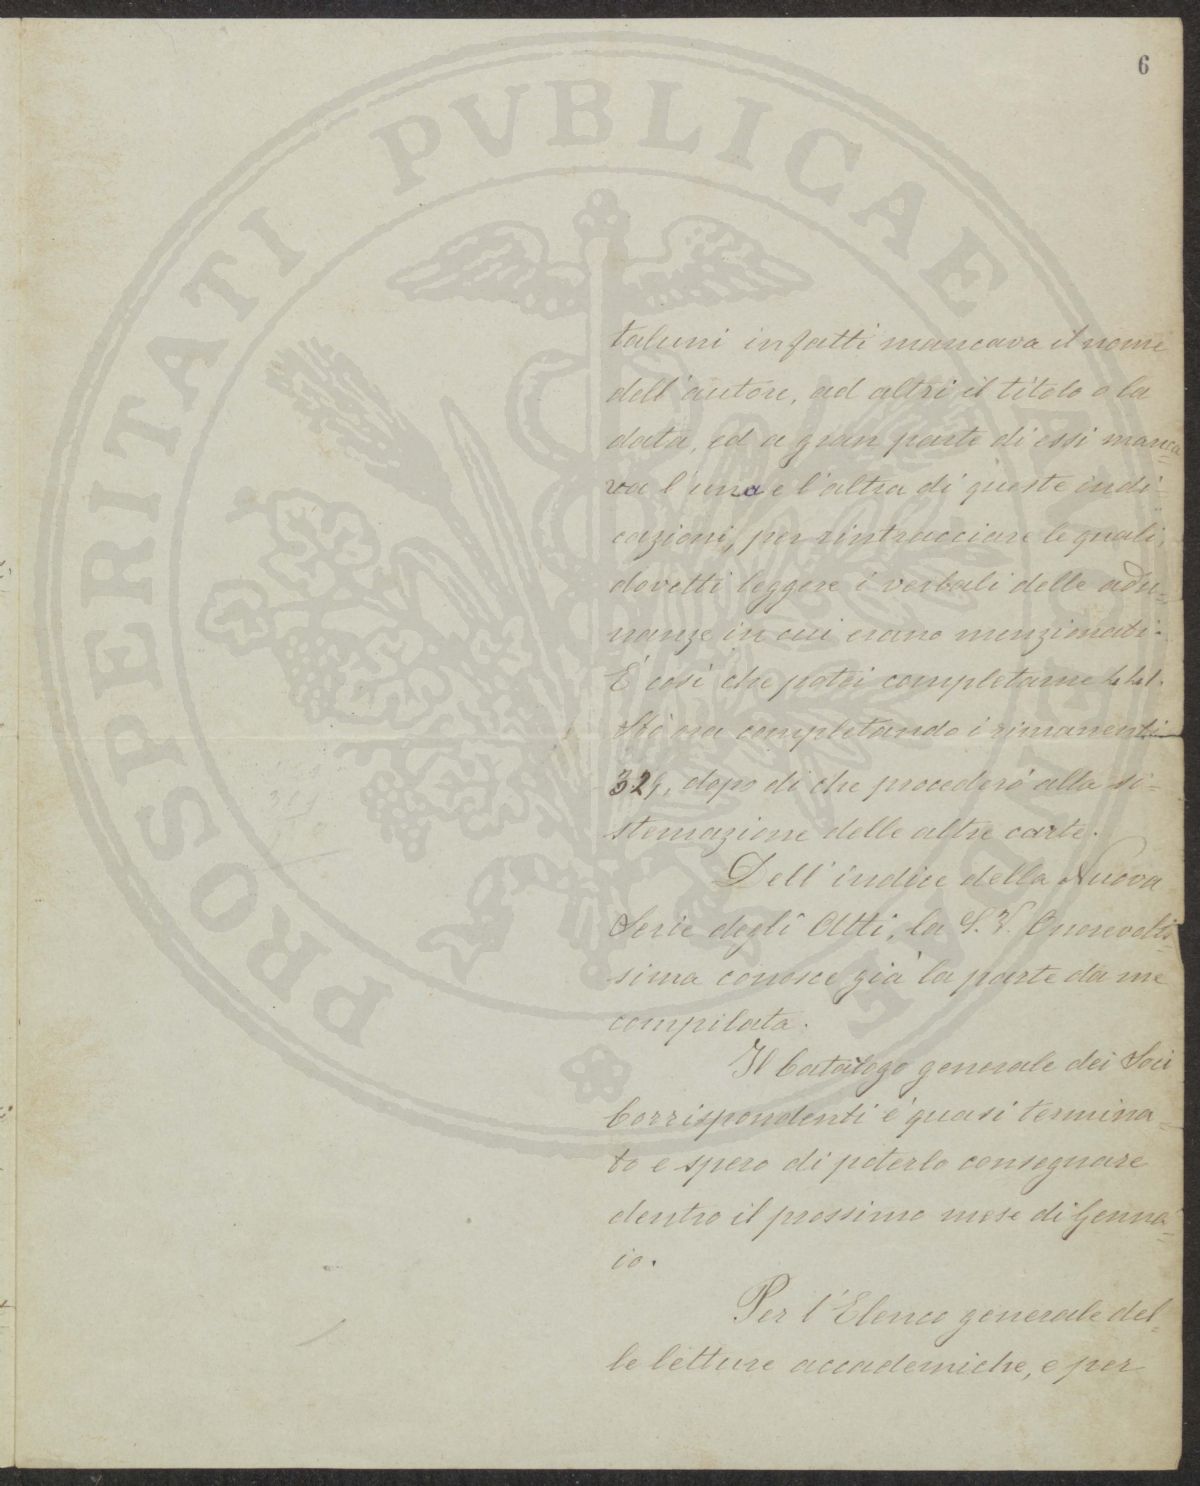 6
PROSPERITATI PVBLICAE AVGENDAE
taluni infatti mancava il nome
dell'autore, ad altri il titolo o la
data, ed a gran parte di essi manca=
va l'una e l'altra di queste indi-
cazioni, per rintracciare le quali,
dovetti leggere i verbali delle adu=
nanze in cui erano menzionati.
È così che potei completarne 441.
Sto ora completando i rimanenti
329, dopo di che procederò alla si=
stemazione delle altre carte.
Dell'indice della Nuova
Serie degli Atti, la S. V. Onorevolis=
sima conosce già la parte da me
compilata.
Il Catalogo generale dei Soci
Corrispondenti è quasi termina=
to e spero di poterlo consegnare
dentro il prossimo mese di Genna=
io.
Per l'Elenco generale del=
le letture accademiche, e per